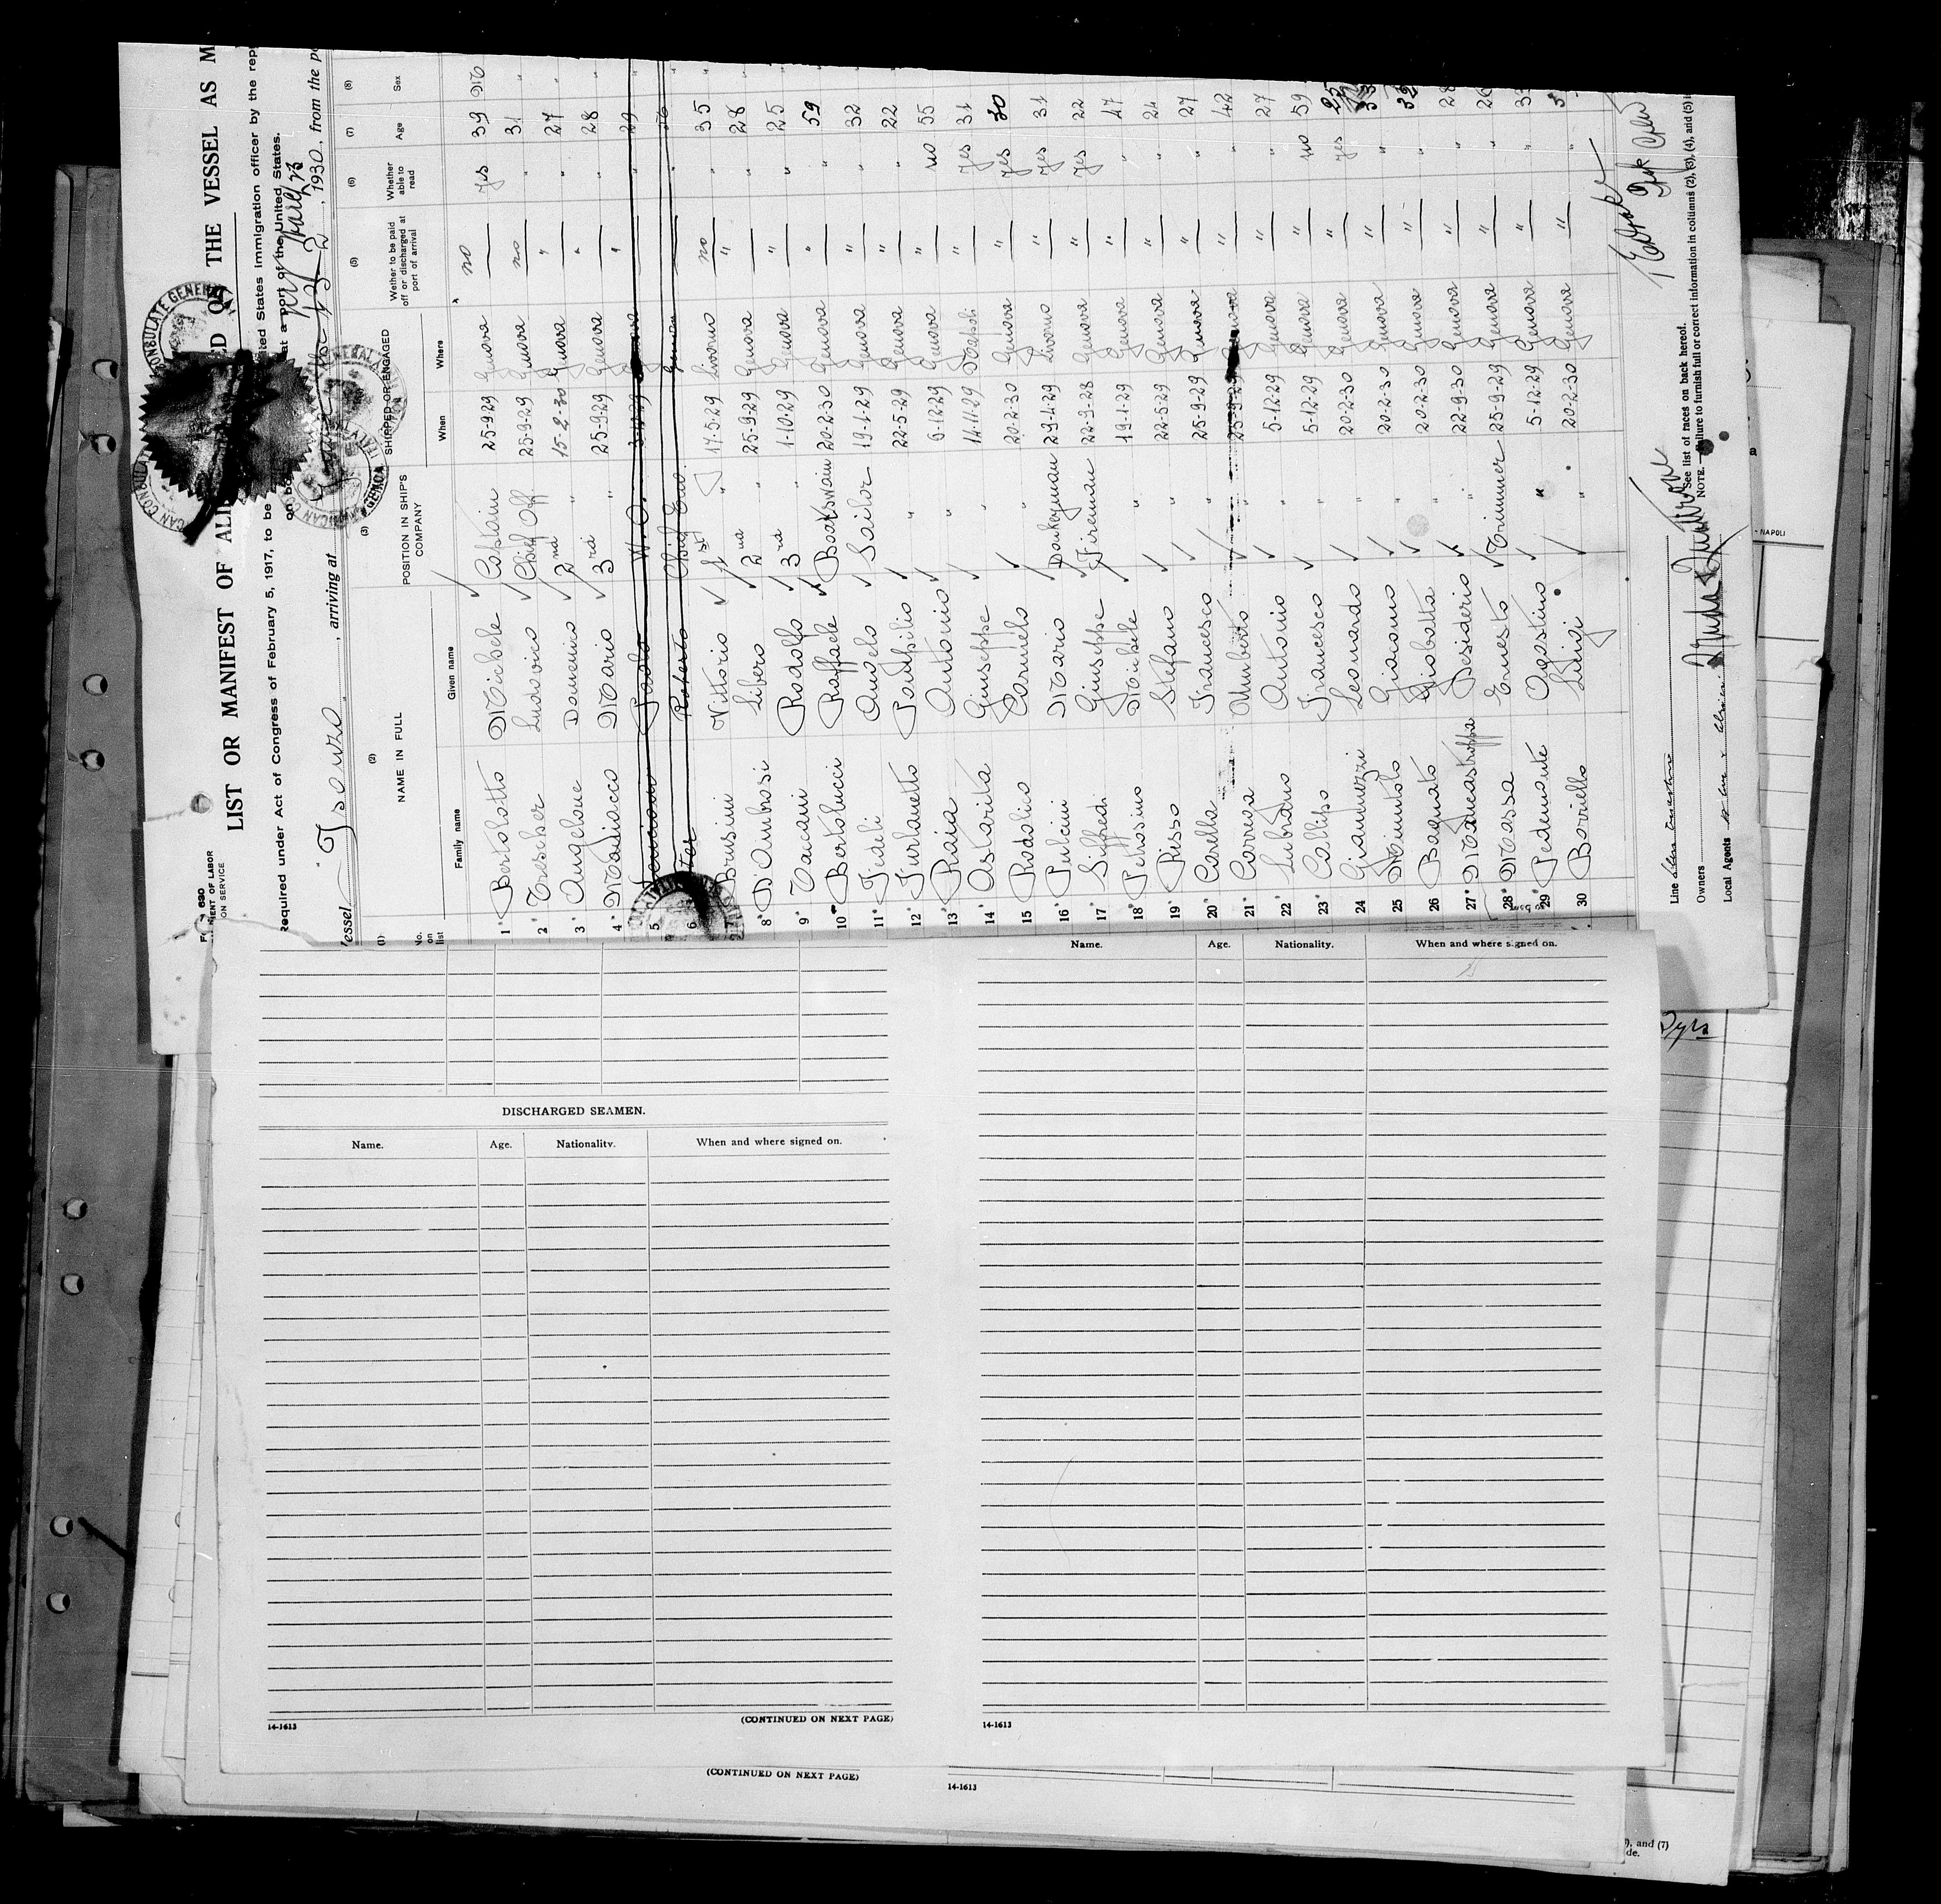 Form 680
LIST OR MANIFEST OF ALI ED ON THE VESSEL AS M
Required under Act of Congress of February 5, 1917, to be ted States immigration officer by the rep
at a port of the United States.
Vessel Isonzo, arriving at 1930, from the po
(1) (2) (3) (5) (6) (7) (8)
No. on list NAME IN FULL POSITION IN SHIP'S COMPANY SHIPPED OR ENGAGED Wether to be paid off or discharged at port of arrival Whether able to read Age Sex
Family name Given name When Where
1 Bertolotto Michele Captain 25-9-29 Genova no yes 39 M
2 Trescher Ludovico Chief Off 25-9-29 Genova no " 31 "
3 Angelone Domenico 2nd " 15-2-30 Genova " " 27 "
4 Madiacco Mario 3rd " 25-9-29 Genova " " 28 "
5 Paolo W.O. 3-12-29 29
6 Roberto Chief Eng. Genova
7 Brusini Vittorio 1st " 17-5-29 Livorno no " 35 "
8 D'Ambrosi Libero 2nd " 25-9-29 Genova " " 28 "
9 Tacani Rodolfo 3rd " 1-10-29 Genova " " 25
10 Bertolucci Raffaele Boatswain 20-2-30 Genova " " 59
11 Fedeli Angelo Sailor 19-1-29 Genova " " 32
12 Furlanetto Pompilio " 22-5-29 Genova " " 22
13 Raia Antonio " 6-12-29 Genova " no 55
14 Astarita Giuseppe " 14-11-29 " yes 31
15 Rodolico Carmelo " 20-2-30 Genova " yes 30
16 Pulcini Mario Donkeyman 29-4-29 Livorno " yes 31
17 Siffredi Giuseppe Fireman 22-9-28 Genova " yes 22
18 Petrosino Michele " 19-1-29 Genova " " 47
19 Risso Stefano " 22-5-29 Genova " " 24
20 Carella Francesco " 25-9-29 Genova " " 27
21 Carrega Umberto " 25-9-29 Genova " " 42
22 Lubrano Antonio " 5-12-29 Genova " " 27
23 Callipo Francesco " 5-12-29 Genova " no 59
24 Giannuzzi Leonardo " 20-2-30 Genova " yes 25
25 Giacomo " 20-2-30 Genova " " 33
26 Bagnato Giobatta " 20-2-30 Genova " " 32
27 Desiderio " 22-9-30 Genova " " 28
28 Massa Ernesto Trimmer 25-9-29 Genova " " 26
29 Pedemonte Agostino " 5-12-29 Genova " "
30 Borriello Luigi " 20-2-30 Genova " "
Line
Owners
Local Agents
See list of races on back hereof.
NOTE.—Failure to furnish full or correct information in columns (2), (3), (4), and (5) i
DISCHARGED SEAMEN.
Name. Age. Nationality. When and where signed on.
14-1613 (CONTINUED ON NEXT PAGE)
Name. Age. Nationality. When and where signed on.
14-1613
(CONTINUED ON NEXT PAGE)
14-1613
- NAPOLI
), and (7)
de.